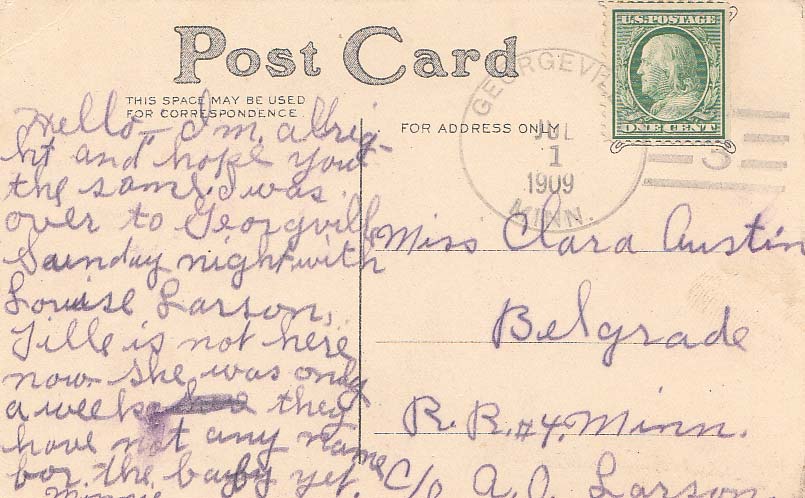 Post Card
THIS SPACE MAY BE USED
FOR CORRESPONDENCE
FOR ADDRESS ONLY
U.S. POSTAGE
ONE CENT
GEORGEVI
JUL
1
1909
MINN.
3
Hello - I'm allrig-
ht and hope you
the same. I was
over to Georgvill
Saunday night with
Louise Larson,
Tille is not here
now she was only
a week they
have not any name
for the baby yet.
Minnie
Miss Clara Austin
Belgrade
R. R. #4. Minn.
C/o A. O. Larson.